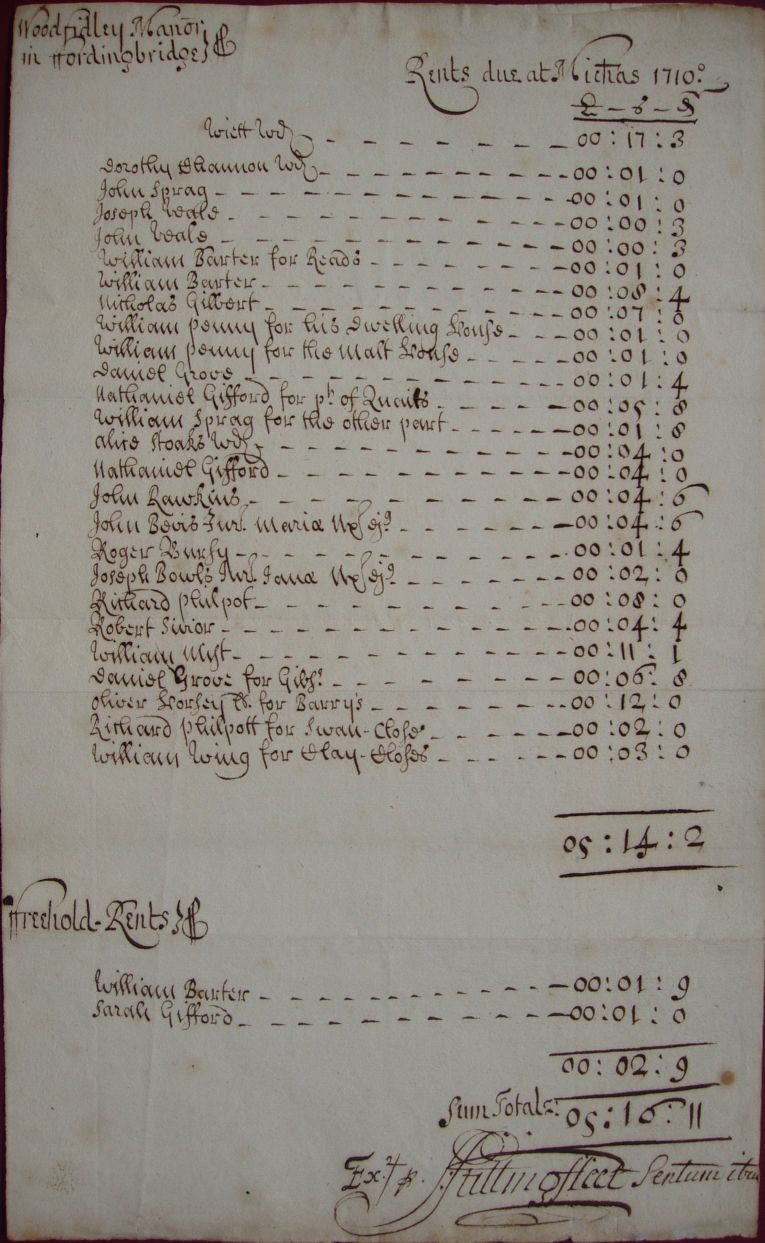 Woodfidley Manor
in ffordingbridge
Rents due at Michas 1710.
£ - s - d
Wiett Wd - 00 : 17 : 3
Dorothy Channon Wd - 00 : 01 : 0
John Sprag - 00 : 01 : 0
Joseph Veale - 00 : 00 : 3
John Veale - 00 : 00 : 3
William Barter for Reads - 00 : 01 : 0
William Barter - 00 : 08 : 4
Nicholas Gilbert - 00 : 07 : 0
William Penny for his Dwelling House - 00 : 01 : 0
William Penny for the Malt House - 00 : 01 : 0
Daniel Grove - 00 : 01 : 4
Nathaniel Gifford for pt of Knaits - 00 : 05 : 8
William Sprag for the other part - 00 : 01 : 8
Alice Stoaks Wd - 00 : 04 : 0
Nathaniel Gifford - 00 : 04 : 0
John Rawkins - 00 : 04 : 6
John Bevis Jur. Maria Ux ej9 - 00 : 04 : 6
Roger Bursy - 00 : 01 : 4
Joseph Bowls Jur. Jana Ux ej9 - 00 : 02 : 0
Richard Philpot - 00 : 08 : 0
Robert Sivior - 00 : 04 : 4
William - 00 : 11 : 1
Daniel Grove for Gibbs - 00 : 06 : 8
Oliver Horsey for Barry's - 00 : 12 : 0
Richard Philpott for Swan-Close - 00 : 02 : 0
William Wing for Clay-Closes - 00 : 03 : 0
05 : 14 : 2
ffreehold-Rents
William Barter - 00 : 01 : 9
Sarah Gifford - 00 : 01 : 0
00 : 02 : 9
Sum Totals: 05 : 16 : 11
Ex. p. Stillingfleet